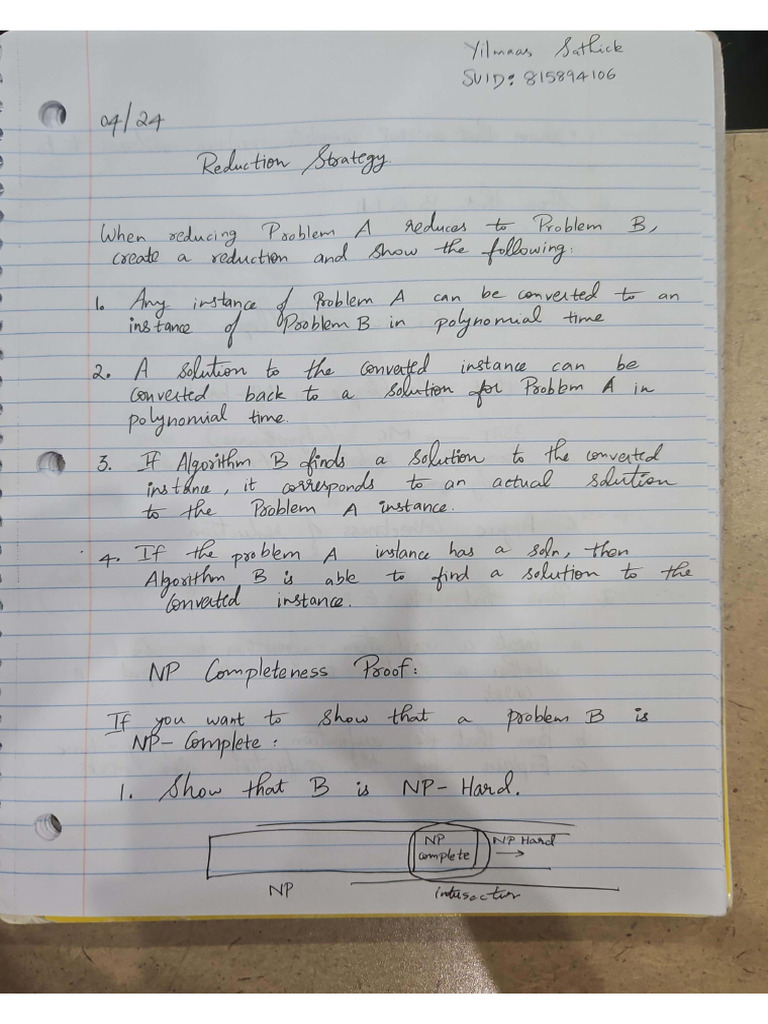 Yilmaas Sathick
SUID: 815894106
04/24
Reduction Strategy.
When reducing Problem A reduces to Problem B,
create a reduction and show the following:
1. Any instance of Problem A can be converted to an
instance of Problem B in polynomial time
2. A solution to the converted instance can be
converted back to a solution for Problem A in
polynomial time.
3. If Algorithm B finds a solution to the converted
instance, it corresponds to an actual solution
to the Problem A instance.
4. If the problem A instance has a soln, then
Algorithm B is able to find a solution to the
converted instance.
NP Completeness Proof:
If you want to show that a problem B is
NP-Complete:
1. Show that B is NP-Hard.
NP complete
NP Hard
NP
intersection